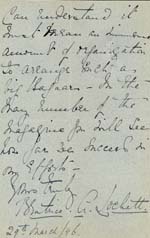 Can understand it
must mean an immense
amount of organization
to arrange such a
big Bazaar - In the
May number of the
Magazine you will see
how far we succeed in
our efforts -
Yours truly
Beatrice A.
29th March /96.